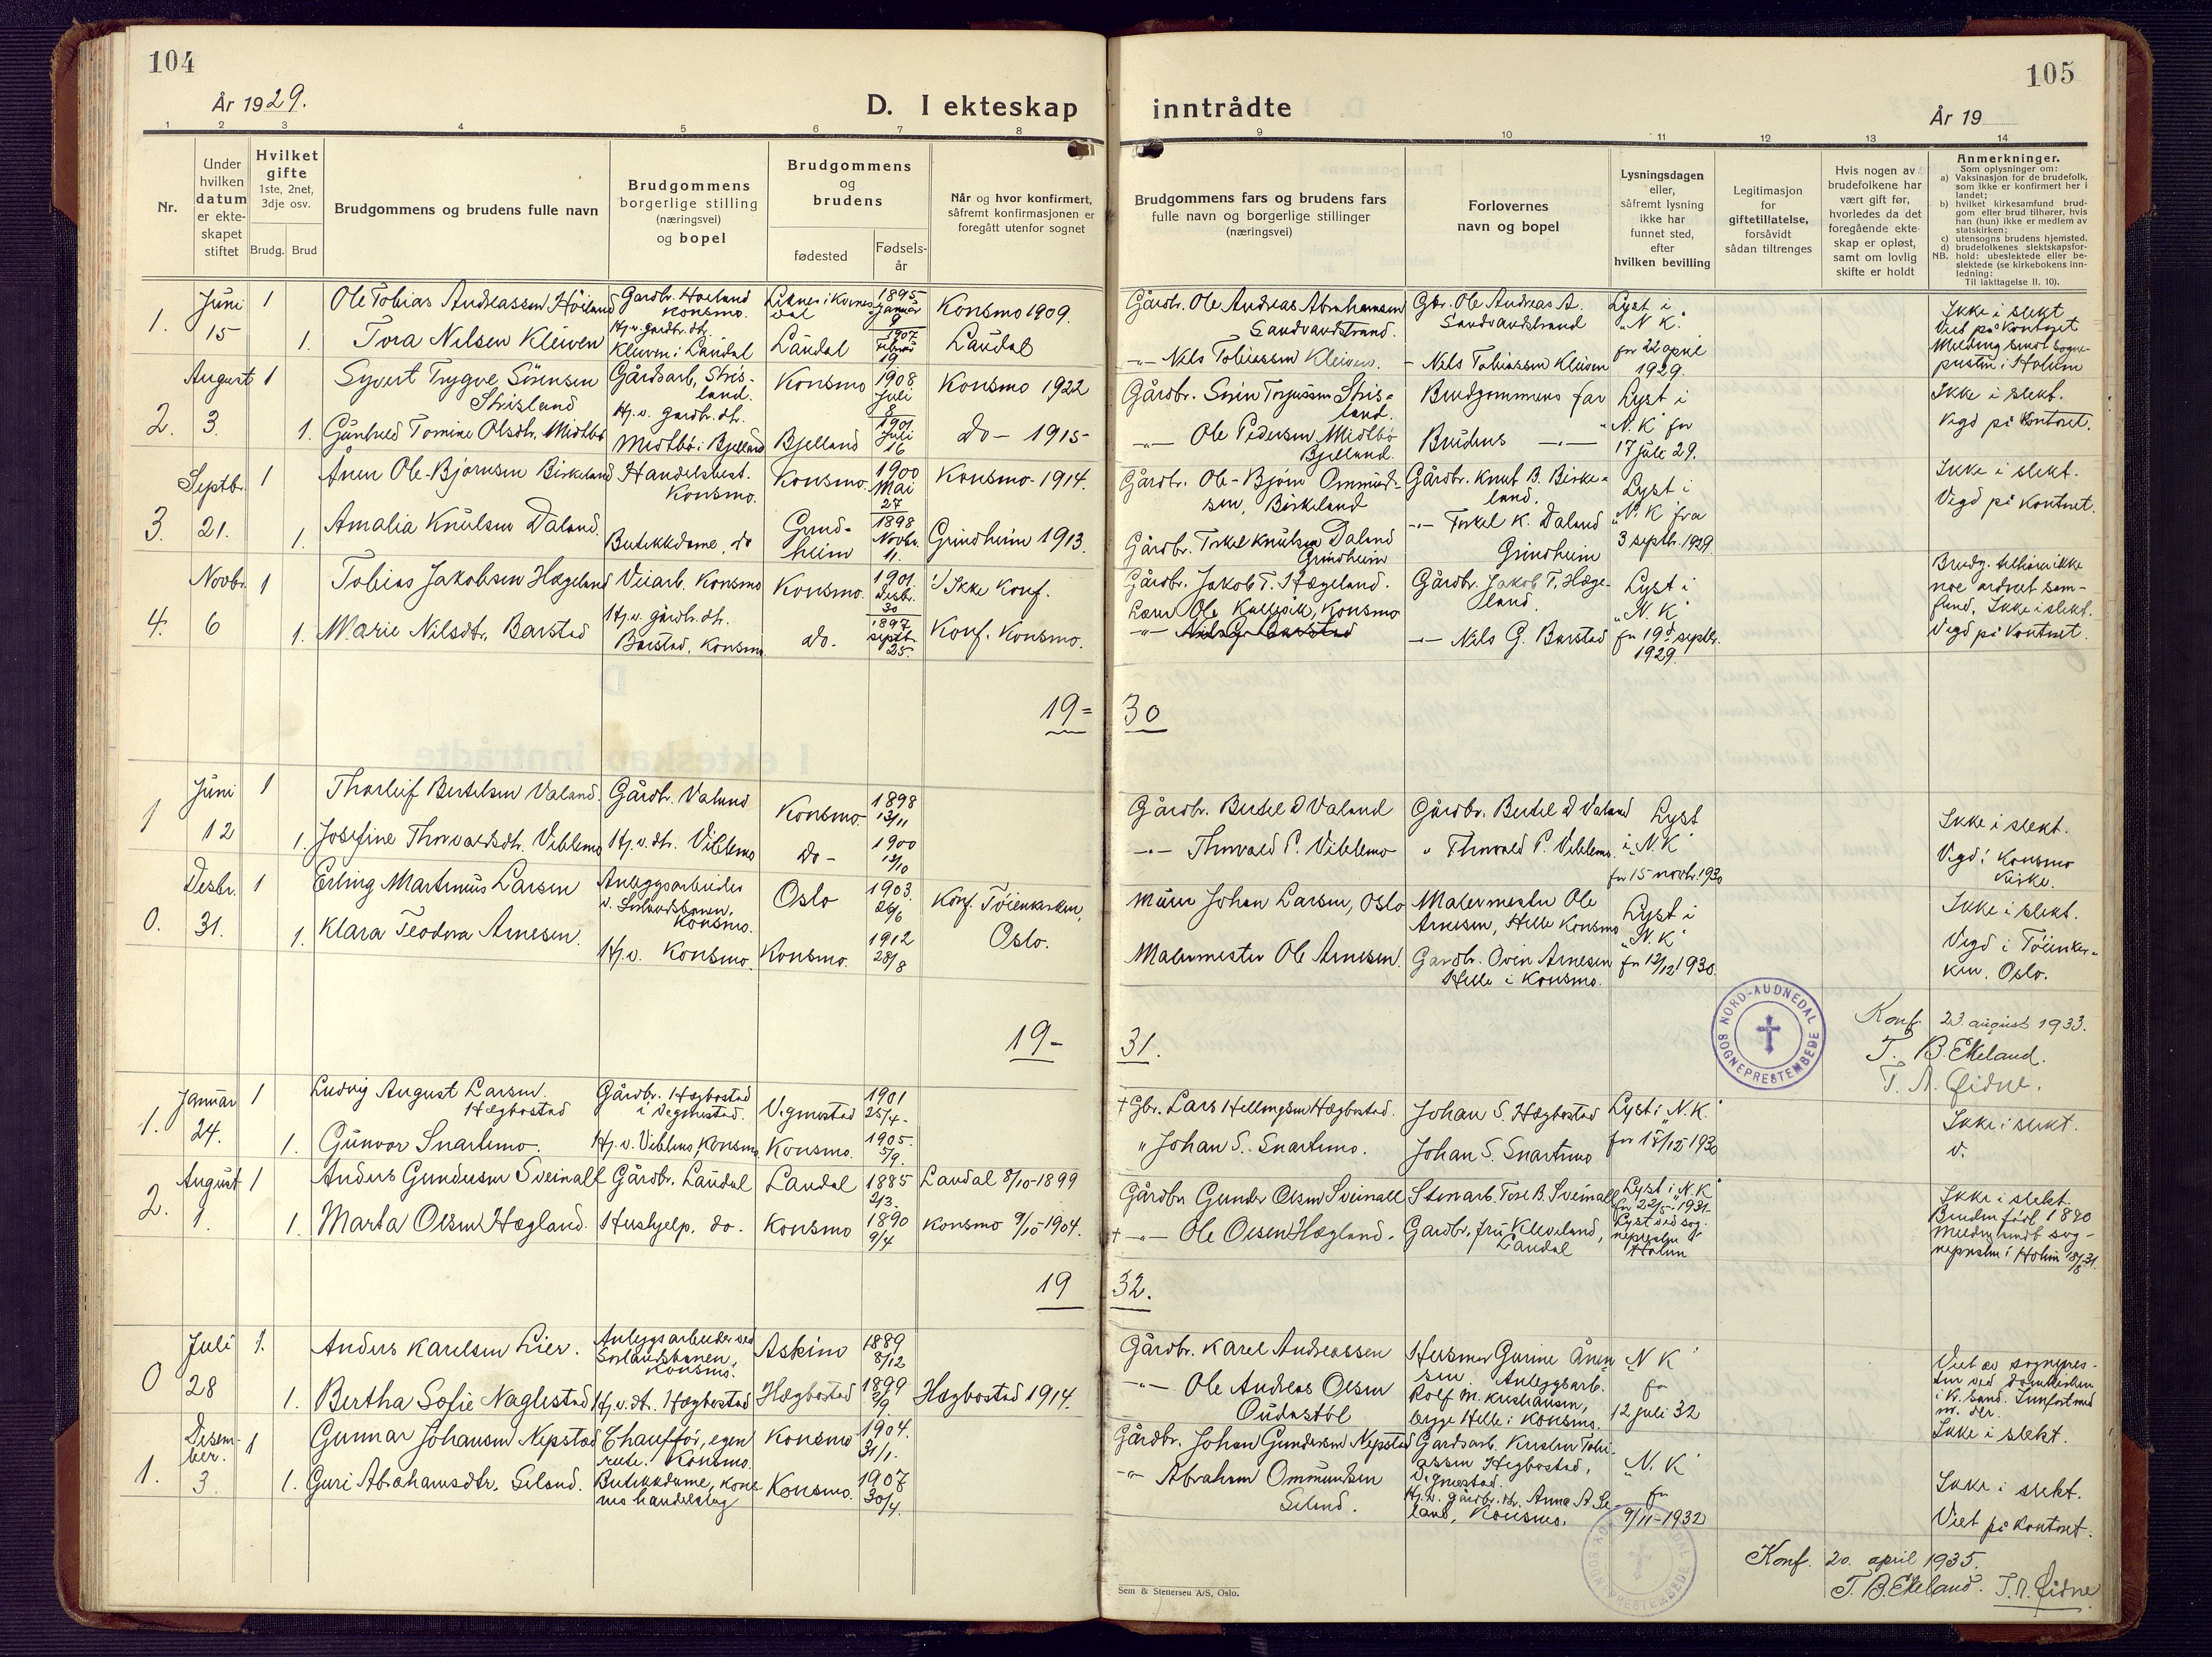 104
År 1929.
D. I ekteskap
inntrådte
105
År 19
1 2 3 4 5 6 7 8
9 10 11 12 13 14
Nr.
Under hvilken datum er ekteskapet stiftet
Hvilket gifte
1ste, 2net, 3dje osv.
Brudg. Brud
Brudgommens og brudens fulle navn
Brudgommens borgerlige stilling (næringsvei) og bopel
Brudgommens og brudens
fødested
Fødselsår
Når og hvor konfirmert, såfremt konfirmasjonen er foregått utenfor sognet
Brudgommens fars og brudens fars fulle navn og borgerlige stillinger (næringsvei)
Forlovernes navn og bopel
Lysningsdagen eller, såfremt lysning ikke har funnet sted, efter hvilken bevilling
Legitimasjon for giftetillatelse, forsåvidt sådan tiltrenges
Hvis nogen av brudefolkene har vært gift før, hvorledes da det foregående ekteskap er opløst, samt om lovlig skifte er holdt
Anmerkninger.
Som oplysninger om:
a) Vaksinasjon for de brudefolk, som ikke er konfirmert her i landet;
b) hvilket kirkesamfund brudgom eller brud tilhører, hvis han (hun) ikke er medlem av statskirken;
c) utensogns brudens hjemsted.
d) brudefolkenes slektskapsforhold: ubeslektede eller beslektede (se kirkebokens innledning:
NB. Til iakttagelse II. 10).
1. Juni 15
1
Ole Tobias Andreassen Höiland
Gardbr. Hoeland Konsmo.
1895 Januar 9
Konsmo 1909.
Gårdbr. Ole Andreas Abrahamsen Sandvandstrand.
Gbr. Ole Andreas A. Sandvandstrand
Lyst i "N.K."
fra 22 april 1929.
Ikke i slekt
Viet på Kontoret
1. Tora Nilsen Kleiven
Hj.v. gardbr. dtr. Kleiven i Laudal
Laudal
1907 Februar 19
Laudal
-"- Nels Tobiassen Kleiven.
- Nils Tobiassen Kleiven
2. August 3.
1
Syvert Trygve Sörensen Strisland
Gårdsarb, Strisland.
Konsmo
1908 Juli 8
Konsmo 1922
Gårdbr. Sörin Torjussen Strisland.
Brudgommens far
Lyst i "N.K" fra 17 juli 29.
Ikke i slekt.
Vigd på Kontoret.
1. Gunhild Tomine Olsdtr. Midtbö
Hj.v. gardbr. dtr. Midtbö i Bjelland
Bjelland
1901 Juli 16
do - 1915
-"- Ole Pedersen Midtbö Bjelland.
Brudens -"-
3. Septbr. 21.
1
Ånen Ole-Bjørnsen Birkeland
Handelsbest. Konsmo.
Konsmo.
1900 Mai 27
Konsmo - 1914.
Gårdbr. Ole-Björn Ommundsen, Birkeland
Gårdbr. Knut B. Birkeland.
Lyst i "N.K" fra 3 septbr. 1929
Ikke i slekt.
Vigd på Kontoret.
1. Amalia Knutsen Daland.
Butikkdame, do
Grindheim
1898 Novbr. 11.
Grindheim 1913.
Gårdbr. Torkel Knutsen Daland Grindheim
-"- Torkel K. Daland Grindheim
4. Novbr. 6
1
Tobias Jakobsen Hægeland
Veiarb. Konsmo
Konsmo.
1901 Desbr. 30
Ikke Konf.
Gårdbr. Jakob T. Hægeland.
Gårdbr. Jakob T. Hægeland.
Lyst i "N.K" fra 19d septbr. 1929.
Brudg. tilhører ikke noe ordnet samfund. Ikke i slekt.
Vigd på Kontoret.
1. Marie Nilsdtr. Barstad
Hj.v. gårdbr. dtr. Barstad, Konsmo
do.
1897 septbr. 25.
Konf. Konsmo.
-"- Nils G. Barstad
-"- Nils G. Barstad
19=
30
1 Juni 12
1
Thorleif Bertelsen Valand.
Gårdbr. Valand
Konsmo.
1898 13/11
Gårdbr. Bertel D Valand
Gårdbr. Bertel D Valand
Lyst i "N.K" fra 15 novbr. 1930
Ikke i slekt.
Vigd i Konsmo Kirke.
1. Josefine Thorvaldsdtr. Viblemo
Hj.v. dtr. Viblemo
do -
1900 13/10
-"- Thorvald P. Viblemo
" Thorvald P. Viblemo.
0. Desbr. 31.
1
Erling Martinius Larsen
Anleggsarbeider v. Sörlandsbanen, Konsmo.
Oslo
1903. 26/6
Konf. Töienkirken, Oslo.
Murer Johan Larsen, Oslo
Malermester Ole Arnesen, Helle Konsmo
Lyst i "N.K" fra 12/12 1930.
Ikke i slekt.
Vigd i Töienkirken, Oslo.
1. Klara Teodora Arnesen.
Hj.v. Konsmo.
Konsmo.
1912 28/8
Malermester Ole Arnesen.
Gardbr. Ovin Arnesen Helle i Konsmo.
NORD-AUDNEDAL SOGNEPRESTEMBEDE
Konf. 23. august 1933.
T. B. Ekeland.
T. A. Øidne.
19-
31.
1. Januar 24.
1
Ludvig August Larsen Hægbostad
Gårdbr. Hægbostad i Vegmostad.
Vigmostad
1901 25/4.
+ Gbr. Lars Hellongsen Hægbostad.
Johan S. Hægbostad
Lyst i "N.K." fra 18/12 1930
Ikke i slekt.
V.
1. Gunvor Snartemo.
Hj.v. Viblemo, Konsmo
Konsmo.
1905. 5/9.
" Johan S. Snartemo.
Johan S. Snartemo
2. August 1.
1
Anders Gundersen Sveinall
Gårdbr. Laudal
Laudal
1885 2/3.
Laudal 8/10-1899
Gårdbr. Gunder Olsen Sveinall
Stenarb. Tore B. Sveinall
Lyst i "N.K" fra 22/5-1931.
Lyst ved sognepresten Holum
Ikke i slekt.
Bruden född 1890
Melding sendt sognepresten i Holum 18/8 31.
1. Marta Olsen Hægland.
Hushjelp, do.
Konsmo
1890 9/4
Konsmo 9/10-1904.
+ -"- Ole Olsen Hægland.
Gardbr. fru Kleveland, Laudal
19
32.
0 Juli 28
1.
Anders Karelsen Lier.
Anleggsarbeider ved Sörlandsbanen, Konsmo.
Askim
1889 8/12
Gårdbr. Karel Andreassen
"N K" fra 12 juli 32
Ikke i slekt.
1. Bertha Sofie Naglestad
Hj.v. dt. Hægbostad
Hægbostad
1899 2/9
Hægbostad 1914.
-"- Ole Andreas Olsen
Anleggsarb. Rolf M. Kristiansen, brygge Helle i Konsmo.
1. Desember. 3.
1
Gunnar Johansen Nepstad
Chaufför, egen rute. Konsmo
Konsmo
1904. 31/1.
Gårdbr. Johan Gundersen Nepstad
Gardsarb. Kristen Tobiassen Hegbostad, Vigmostad.
"N.K" fra 9/11-1932
Ikke i slekt.
Viet på Kontoret.
1. Guri Abrahamsdtr. Seland.
Butikkdame, Konsmo handelslag
Konsmo.
1907 30/4.
-"- Abraham Ommundsen Seland.
Hj.v. gårdbr. dtr. Anna A Seland, Konsmo.
Konf. 20. april 1935.
T. B. Ekeland. T. A. Øidne
Sem & Stenersen A/S, Oslo.